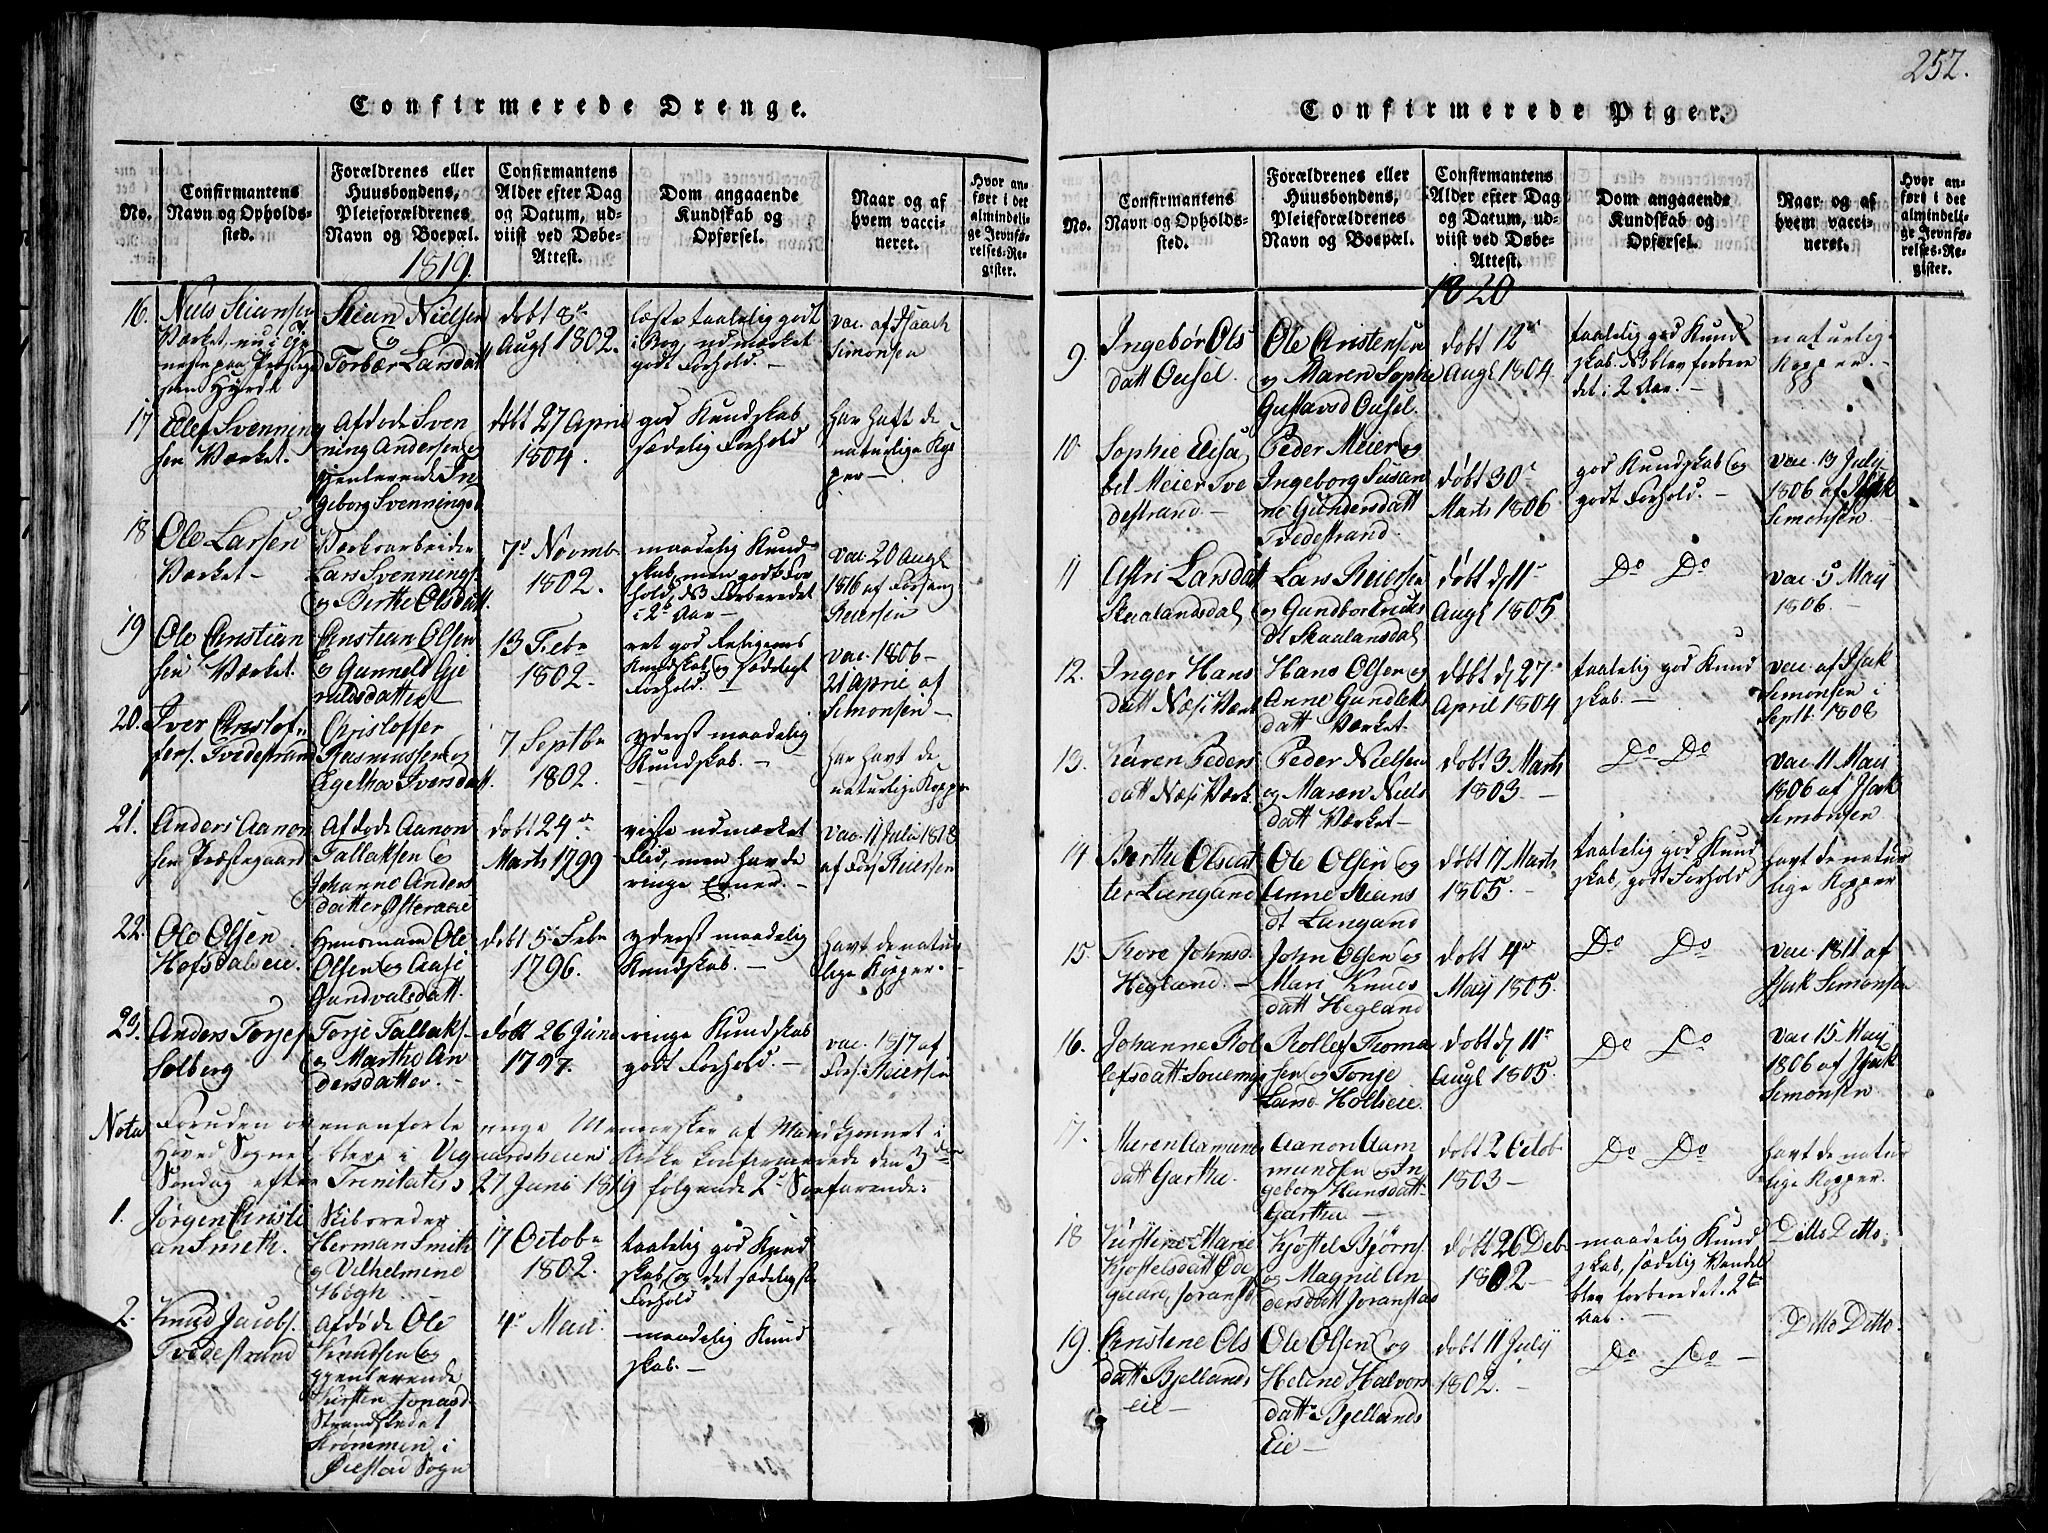 252.
Confirmerede Drenge.
No.
Confirmantens
Navn og Opholds-
sted.
Forældrenes eller
Huusbondens,
Pleieforældrenes
Navn og Boepæl.
Confirmantens
Alder efter Dag
og Datum, ud-
viist ved Døbe-
Attest.
Dom angaaende
Kundskab og
Opførsel.
Naar og af
hvem vacci-
neret.
Hvor an-
ført i det
almindeli-
ge Jevnfø-
relses-Re-
gister.
1819.
16.
Niels Steansen
Værket, nu i Tje
neste paa Præstega
Stean Nielsen
og
Torbær Larsdatt
døbt 8de
Augl 1802.
læste taalelig godt
i Bog, udmærket
godt Forhold. -
vac. af Isaach
Simonsen
17
Ellef Svenning
sen Værket.
Afdøde Sven
ning Andersen og
gjenlevende In
geborg Svenningsd
døbt 27 April
1804.
god Kundskab
sædelig Forhold
har haft de
naturlige Kop
per -
18
Ole Larsen
Værket -
Værksarbeider
Lars Svennings.
og Berthe Olsdatt.
7de Novemb
1802.
maadelig Kund-
skab, men godt For
hold, NB Forberedet
i 2de Aar -
vac 20 Augl
1816 af Forsang
Reiersen
19
Ole Christian
sen Værket.
Christian Olsen
og Gunneld Gje
ruldsdatter
13 Febr
1802 -
ret god Religions
Kundskab og sædeligt
Forhold. -
vac. 1806 -
21 April af
Simonsen -
20.
Iver Christof-
fers. Tvedestrand
Christoffer
Rasmussen og
Egelthe Iversdatt.
7 Septbr
1802.
yderst maadelig
Kundskab. -
har havt de
naturlige Kopper
21.
Anders Aanon
sen Præstegaard
Afdøde Aanon
Tallaksen og
Johanne Anders
datter Østeraaeie
døbt 24de
Marts 1799
viste udmærket
Flid, men havde
ringe Evner. -
vac. 11 Julii 1818
af Fors Reiersen
22.
Ole Olsen
Hofsdalseie.
Huusmand Ole
Olsen og Aase
Gundvalsdatt.
døbt 5 Febr
1796.
yderst maadelig
Kundskab. -
havt de natur
lige Kopper. -
23.
Anders Torjes
Solberg
Torje Tallaks-
og Marthe An
dersdatter. -
døbt 26 Juni
1797.
ringe Kundskab
godt Forhold. -
vac. 1817 af
Fors. Reiersen
Nota
Foruden ovenanførte unge Mennesker af Mandkjønnet i
Hoved Sognet, bleve i Vegaardsheiens Kirke konfirmerede den 3die
Søndag efter Trinitatis, 27 Juni 1819 følgende 2de Søefarende:
1.
Jørgen Christi
an Smith.
Skibsreder
Herman Smith
og Vilhelmine
Høgh. -
17 Octobr
1802.
taalelig god Kund
skab og det sædeligste
Forhold
2.
Knud Jacobs.
Tvedestrand
Afdøde Ole
Knudsen og
gjenlevende
Kirsten Jonasd
Strandstedet
Strømmen i
Øiestad Sogn
4de Maii
maadelig Kund
skab. -
Confirmerede Piger.
No.
Confirmantens
Navn og Opholds-
sted.
Forældrenes eller
Huusbondens,
Pleieforældrenes
Navn og Boepæl.
Confirmantens
Alder efter Dag
og Datum, ud-
viist ved Døbe-
Attest.
Dom angaaende
Kundskab og
Opførsel.
Naar og af
hvem vacci-
neret.
Hvor an-
ført i det
almindeli-
ge Jevnfø-
relses-Re-
gister.
1820
9.
Ingebør Ols
datt Ousel.
Ole Christensen
og Maren Sophie
Gustavsd Ousel.
døbt 12de
Augl 1804.
taalelig god Kund
skab. NB blev forbere
det i 2 Aar. -
naturlig
Kopper. -
10.
Sophie Elisa
bet Meier Tve
destrand -
Peder Meier og
Ingeborg Susan
ne Gundersdatt
Tvedestrand.
døbt 30te
Marts 1806
god Kundskab og
godt Forhold. -
vac 13 July
1806 af Isak
Simonsen. -
11
Astri Larsdatt
Skaalandsdal
Lars Reiersen
og Gundbor Eriks
dt Skaalansdal
døbt d 11te
Augl 1805.
Do Do
vac 5 May
1806. -
12.
Inger Hans
datt Næs Værk
Hans Olsen og
Anne Gundleks
datt Værket.
døbt d 27.
April 1804
taalelig god Kund
skab. -
vac. af Isak
Simonsen i
Septb. 1808
13.
Karen Peders
datt Næs Værk.
Peder Nielsen
og Maren Niels
datt Værket -
døbt 3 Marts
1803. -
Do Do
vac 11 May
1806 af Isak
Simonsen
14
Berthe Olsdat
ter Langand
Ole Olsen og
Anne Steans
dt Langand
døbt 17 Marts
1805. -
taalelig god Kund
skab, godt Forhold
havt de natur
lige Kopper
15.
Thore Johnsd.
Hegland. -
John Olsen og
Mari Knuds
datt Hegland
døbt 4de
May 1805.
Do Do
vac 1811 af
Isak Simonsen
16.
Johanne Rol
lefsdatt
Rollef Thoma
sen og Tonje
Holtseie.
døbt d 11te
Augl 1805.
Do Do
vac 15 May
1806 af Isak
Simonsen.
17.
Maren Aamunds
datt Garthe.
Aanon Aam
undsen og In
geborg Hansdatt.
Garthe -
døbt 2 Octob
1803 -
Do Do
havt de natur
lige Kopper.
18
Kirstine Marie
Kjøstelsdatt Øde
gaard, Joransd
Kjøstel Bjørns.
og Magnil An
dersdatt Joranstad
døbt 26 Deb
1802 -
maadelig Kund
skab, sædelig Vandel
blev forberedet i 2de
Aar.
Ditto Ditto.
19.
Christene Ols
datt Bjellands
eie -
Ole Olsen og
Helene Halvors
datt Bjellands
Eie -
døbt 11 July
1802. -
Do Do -
Ditto Ditto.